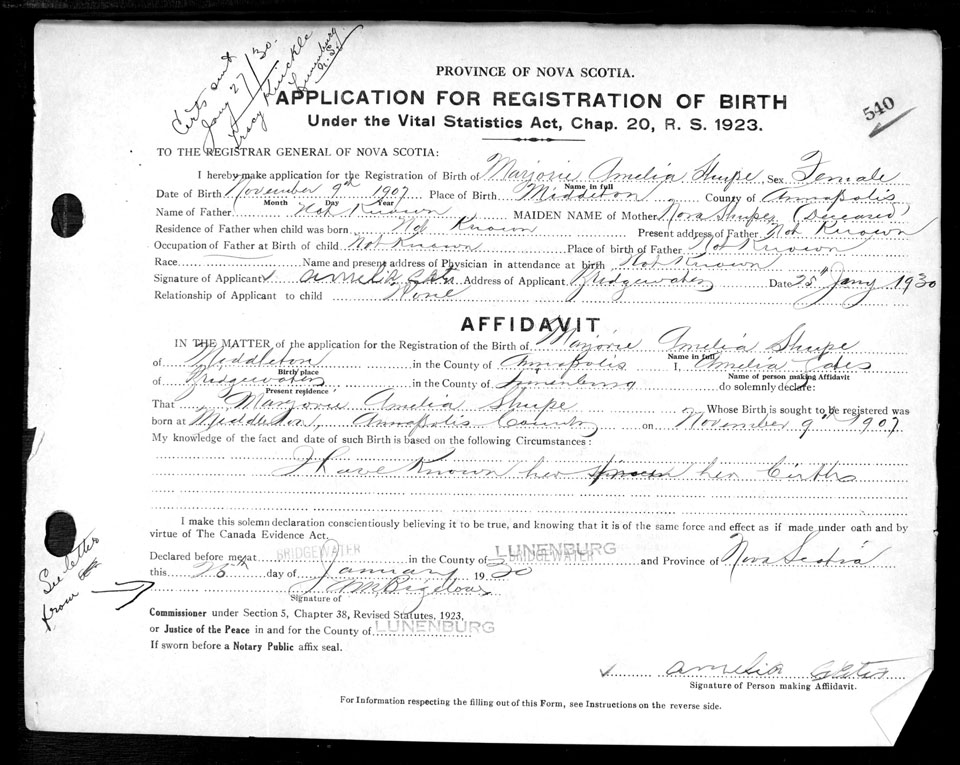 Certs sent
Jany 27/30.
Tracy Knickle
Lunenburg
N.S.
PROVINCE OF NOVA SCOTIA.
APPLICATION FOR REGISTRATION OF BIRTH
540
Under the Vital Statistics Act, Chap. 20, R. S. 1923.
TO THE REGISTRAR GENERAL OF NOVA SCOTIA:
I hereby make application for the Registration of Birth of Marjorie Amelia Shupe Sex Female
Name in full
Date of Birth November 9th 1907 Place of Birth Middleton County of Annapolis
Month Day Year
Name of Father Not Known MAIDEN NAME of Mother Nora Shupe (Deceased)
Residence of Father when child was born Not Known Present address of Father Not Known
Occupation of Father at Birth of child Not Known Place of birth of Father Not Known
Race Name and present address of Physician in attendance at birth Not Known
Signature of Applicant Amelia Address of Applicant Bridgewater Date 25th Jany 1930
Relationship of Applicant to child None
AFFIDAVIT
IN THE MATTER of the application for the Registration of the Birth of Marjorie Amelia Shupe
Name in full
of Middleton in the County of Annapolis I, Amelia
Birth place Name of person making Affidavit
of Bridgewater in the County of Lunenburg do solemnly declare:
Present residence
That Marjorie Amelia Shupe Whose Birth is sought to be registered was
born at Middleton, Annapolis County on November 9th 1907
My knowledge of the fact and date of such Birth is based on the following Circumstances:
I Have Known her since her Birth
I make this solemn declaration conscientiously believing it to be true, and knowing that it is of the same force and effect as if made under oath and by
virtue of The Canada Evidence Act.
Declared before me at BRIDGEWATER in the County of LUNENBURG BRIDGEWATER and Province of Nova Scotia
this 25th day of January 1930
See letter
from
Signature of
Commissioner under Section 5, Chapter 38, Revised Statutes, 1923,
or Justice of the Peace in and for the County of LUNENBURG
If sworn before a Notary Public affix seal.
Amelia
Signature of Person making Affidavit.
For Information respecting the filling out of this Form, see Instructions on the reverse side.